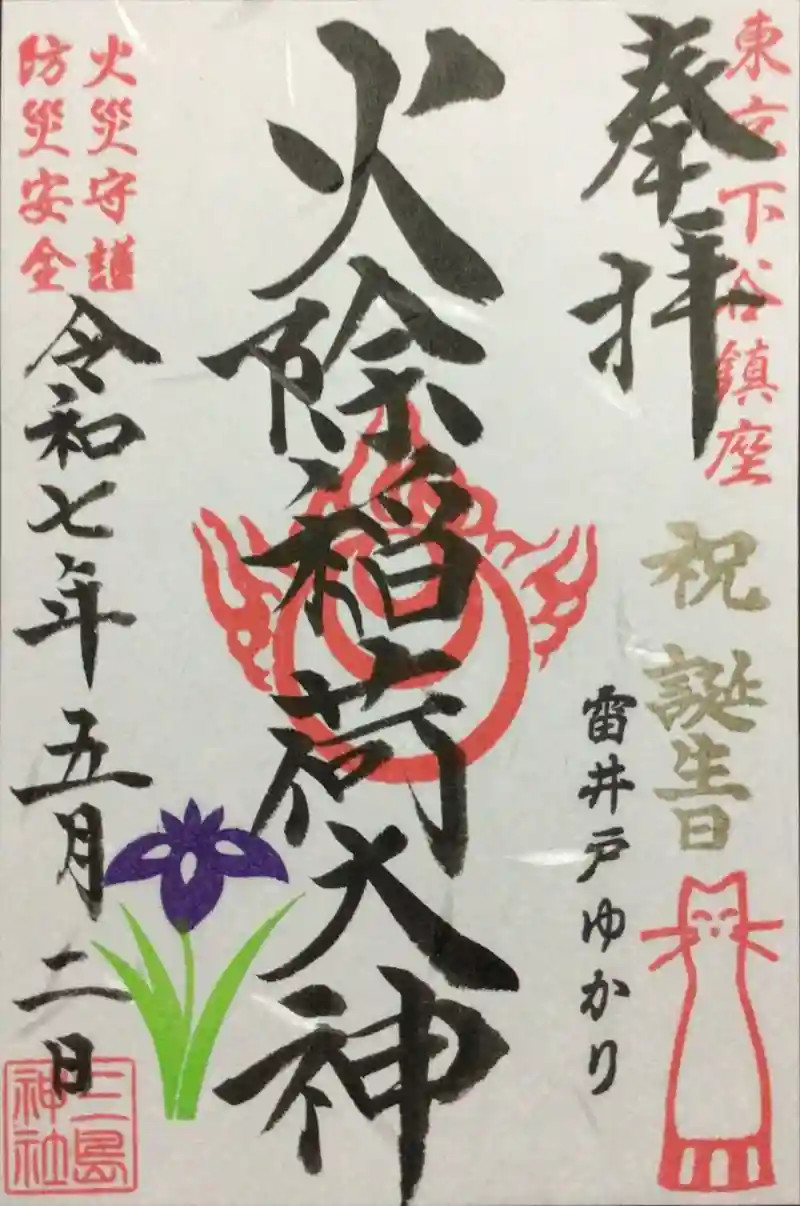 東京下谷鎮座
奉拝
祝 誕生日
雷井戸ゆかり
火除稲荷大神
火災守護
防災安全
令和七年五月二日
三島
神社